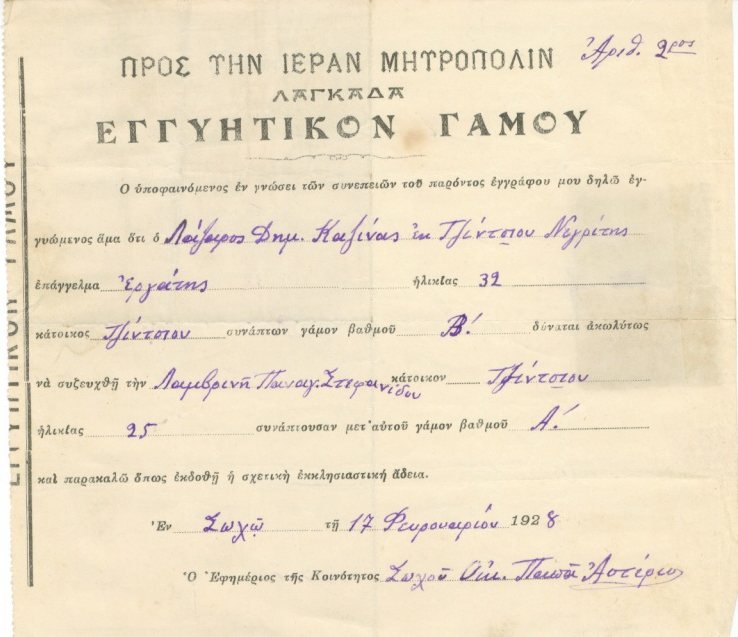 Ἀριθ. 2ρος
ΠΡΟΣ ΤΗΝ ΙΕΡΑΝ ΜΗΤΡΟΠΟΛΙΝ
ΛΑΓΚΑΔΑ
ΕΓΓΥΗΤΙΚΟΝ ΓΑΜΟΥ
Ὁ ὑποφαινόμενος ἐν γνώσει τῶν συνεπειῶν τοῦ παρόντος ἐγγράφου μου δηλῶ ἐγ-
γυώμενος ἅμα ὅτι ὁ Λάζαρος Δημ. Καζίνας ἐκ Τζίντσιου Νιγρίτης
ἐπάγγελμα Ἐργάτης ἡλικίας 32
κάτοικος Τζίντσιου συνάπτων γάμον βαθμοῦ Β! δύναται ἀκωλύτως
νὰ συζευχθῇ τὴν Λαμβρινὴ Παναγ. Στεφανίδου κάτοικον Τζίντσιου
ἡλικίας 25 συνάπτουσαν μετ' αὐτοῦ γάμον βαθμοῦ Α!
καὶ παρακαλῶ ὅπως ἐκδοθῇ ἡ σχετικὴ ἐκκλησιαστικὴ ἄδεια.
Ἐν Σωχῷ τῇ 17 Φευρουαρίου 1928
Ὁ Ἐφημέριος τῆς Κοινότητος Σωχοῦ Οἰκ. Παπᾶ Ἀστέριος
ΕΓΓΥΗΤΙΚΟΝ ΓΑΜΟΥ